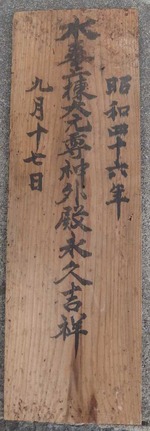 昭和四十六年
水奉上棟大元尊神外殿永久吉祥
九月十七日